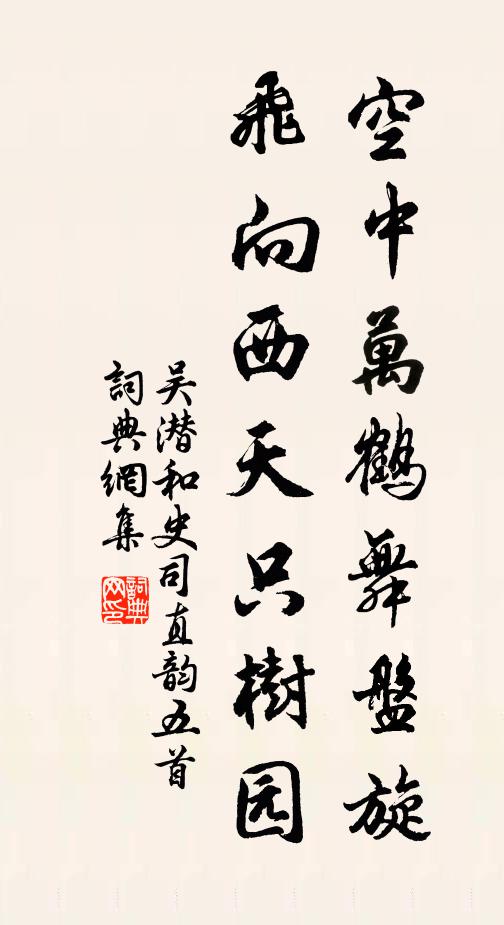 空中萬鶴舞盤旋
飛向西天只樹园
吴潜和史司直韵五首
詞典網集
詞典网印